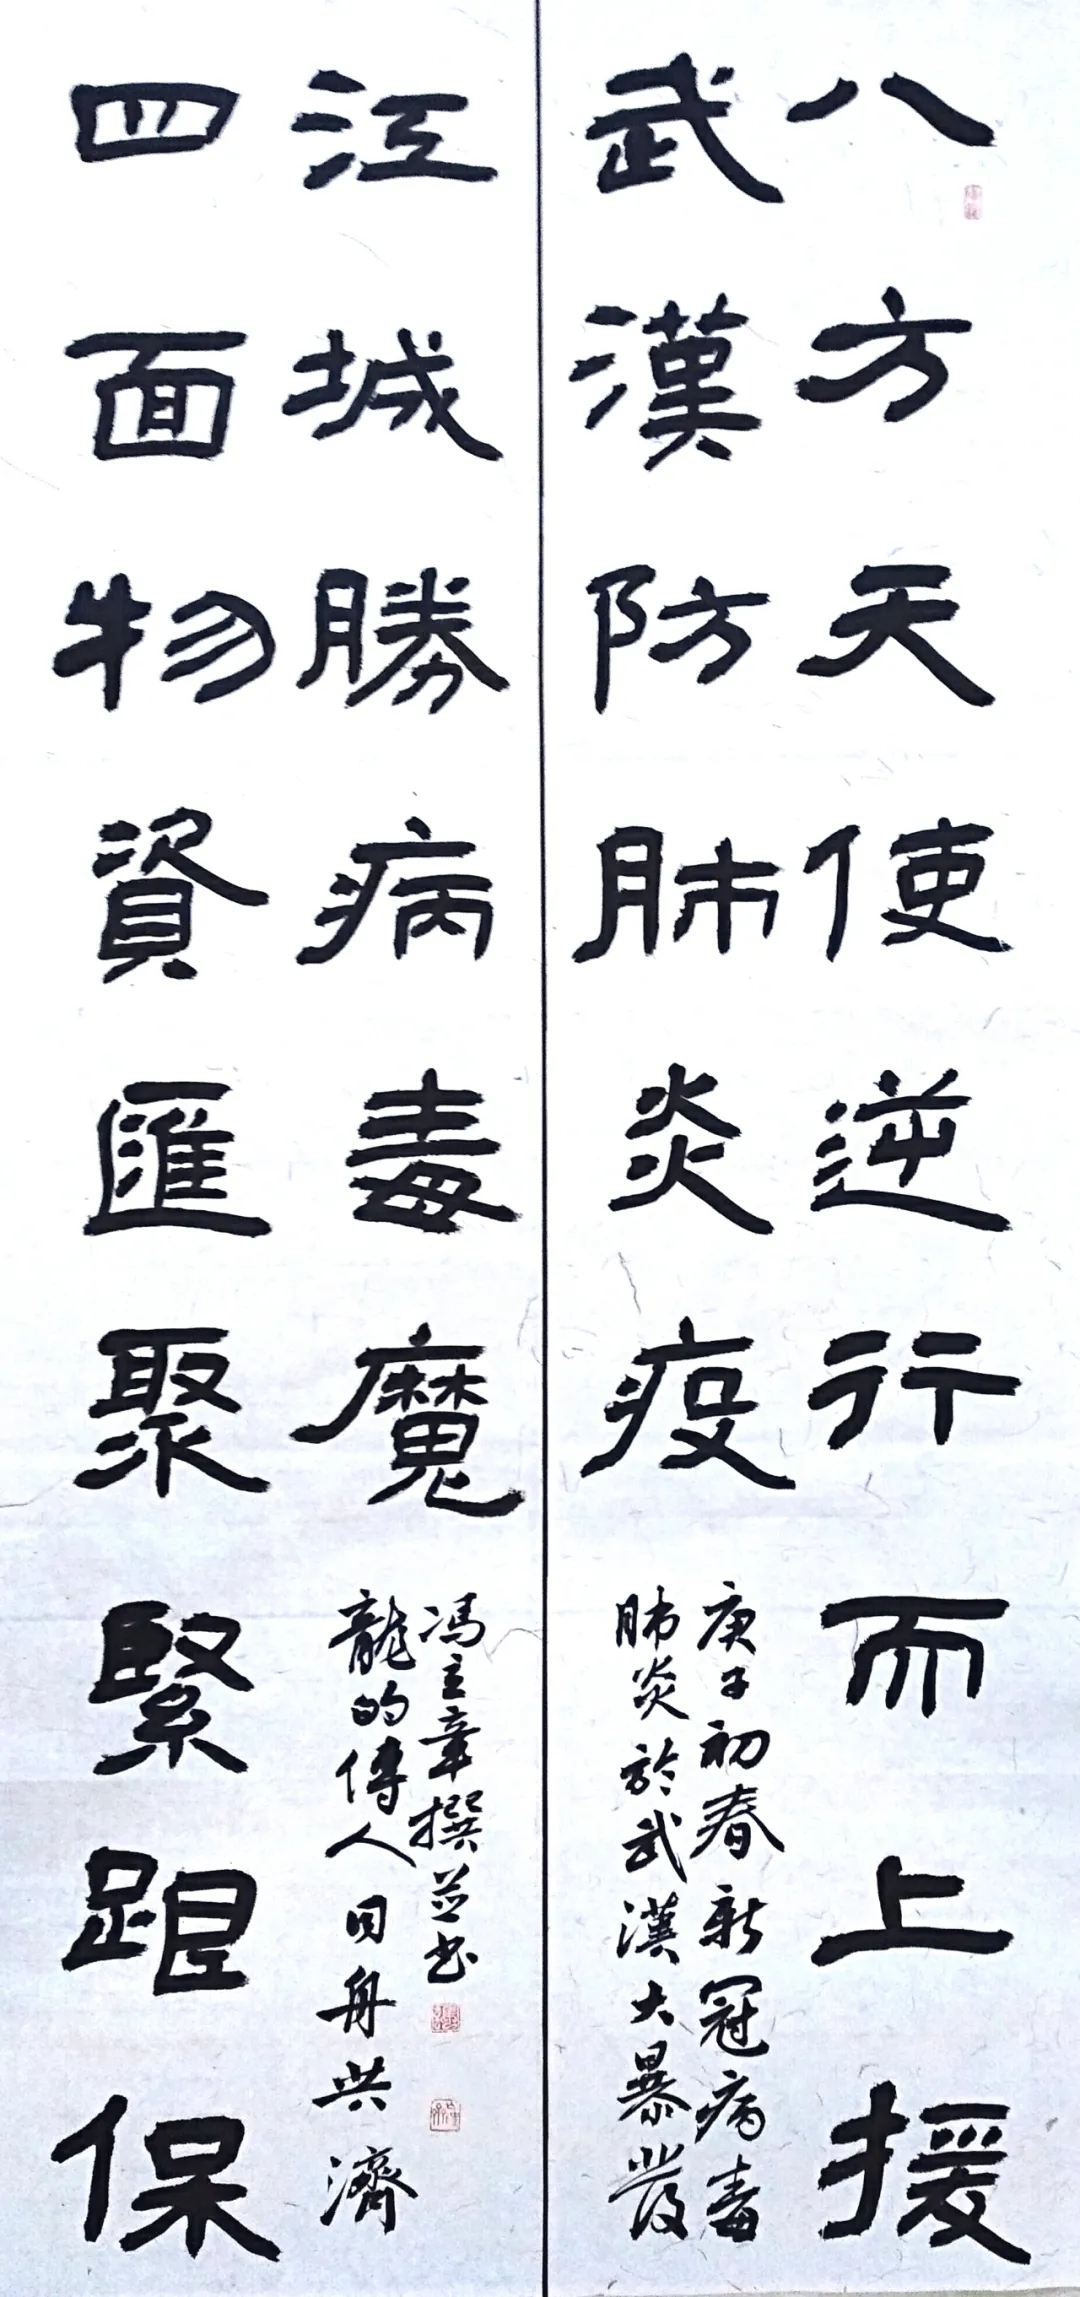 八方天使逆行而上援
武漢防肺炎疫
庚子初春新冠病毒
肺炎於武漢大暴發
四面物資匯聚緊跟保
江城勝病毒魔
龍的傳人同舟共濟
馮立章撰並书